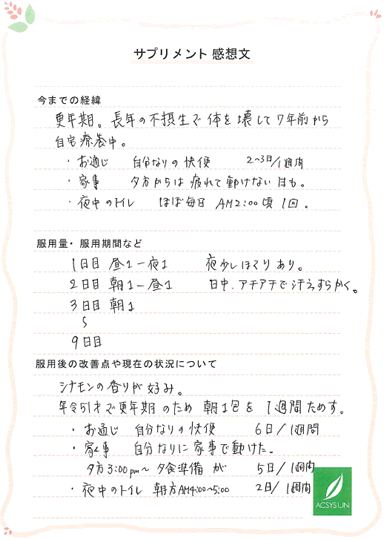 サプリメント 感想文
今までの経緯
更年期。長年の不摂生で体を壊して7年前から
自宅療養中。
・お通じ 自分なりの快便 2〜3日/1週間
・家事 夕方からは疲れて動けない日も。
・夜中のトイレ ほぼ毎日 AM2:00頃 1回。
服用量・服用期間など
1日目 昼1ー夜1 夜少しほてりあり。
2日目 朝1ー昼1 日中、アチアチで汗
3日目 朝1
9日目
服用後の改善点や現在の状況について
シナモンの香りが好み。
年令51才で更年期のため 朝1包を1週間ためす。
・お通じ 自分なりの快便 6日/1週間
・家事 自分なりに家事で動けた。
夕方3:00pm〜 夕食準備が 5日/1週間
・夜中のトイレ 朝方AM4:00〜5:00 2日/1週間
ACSYSUN